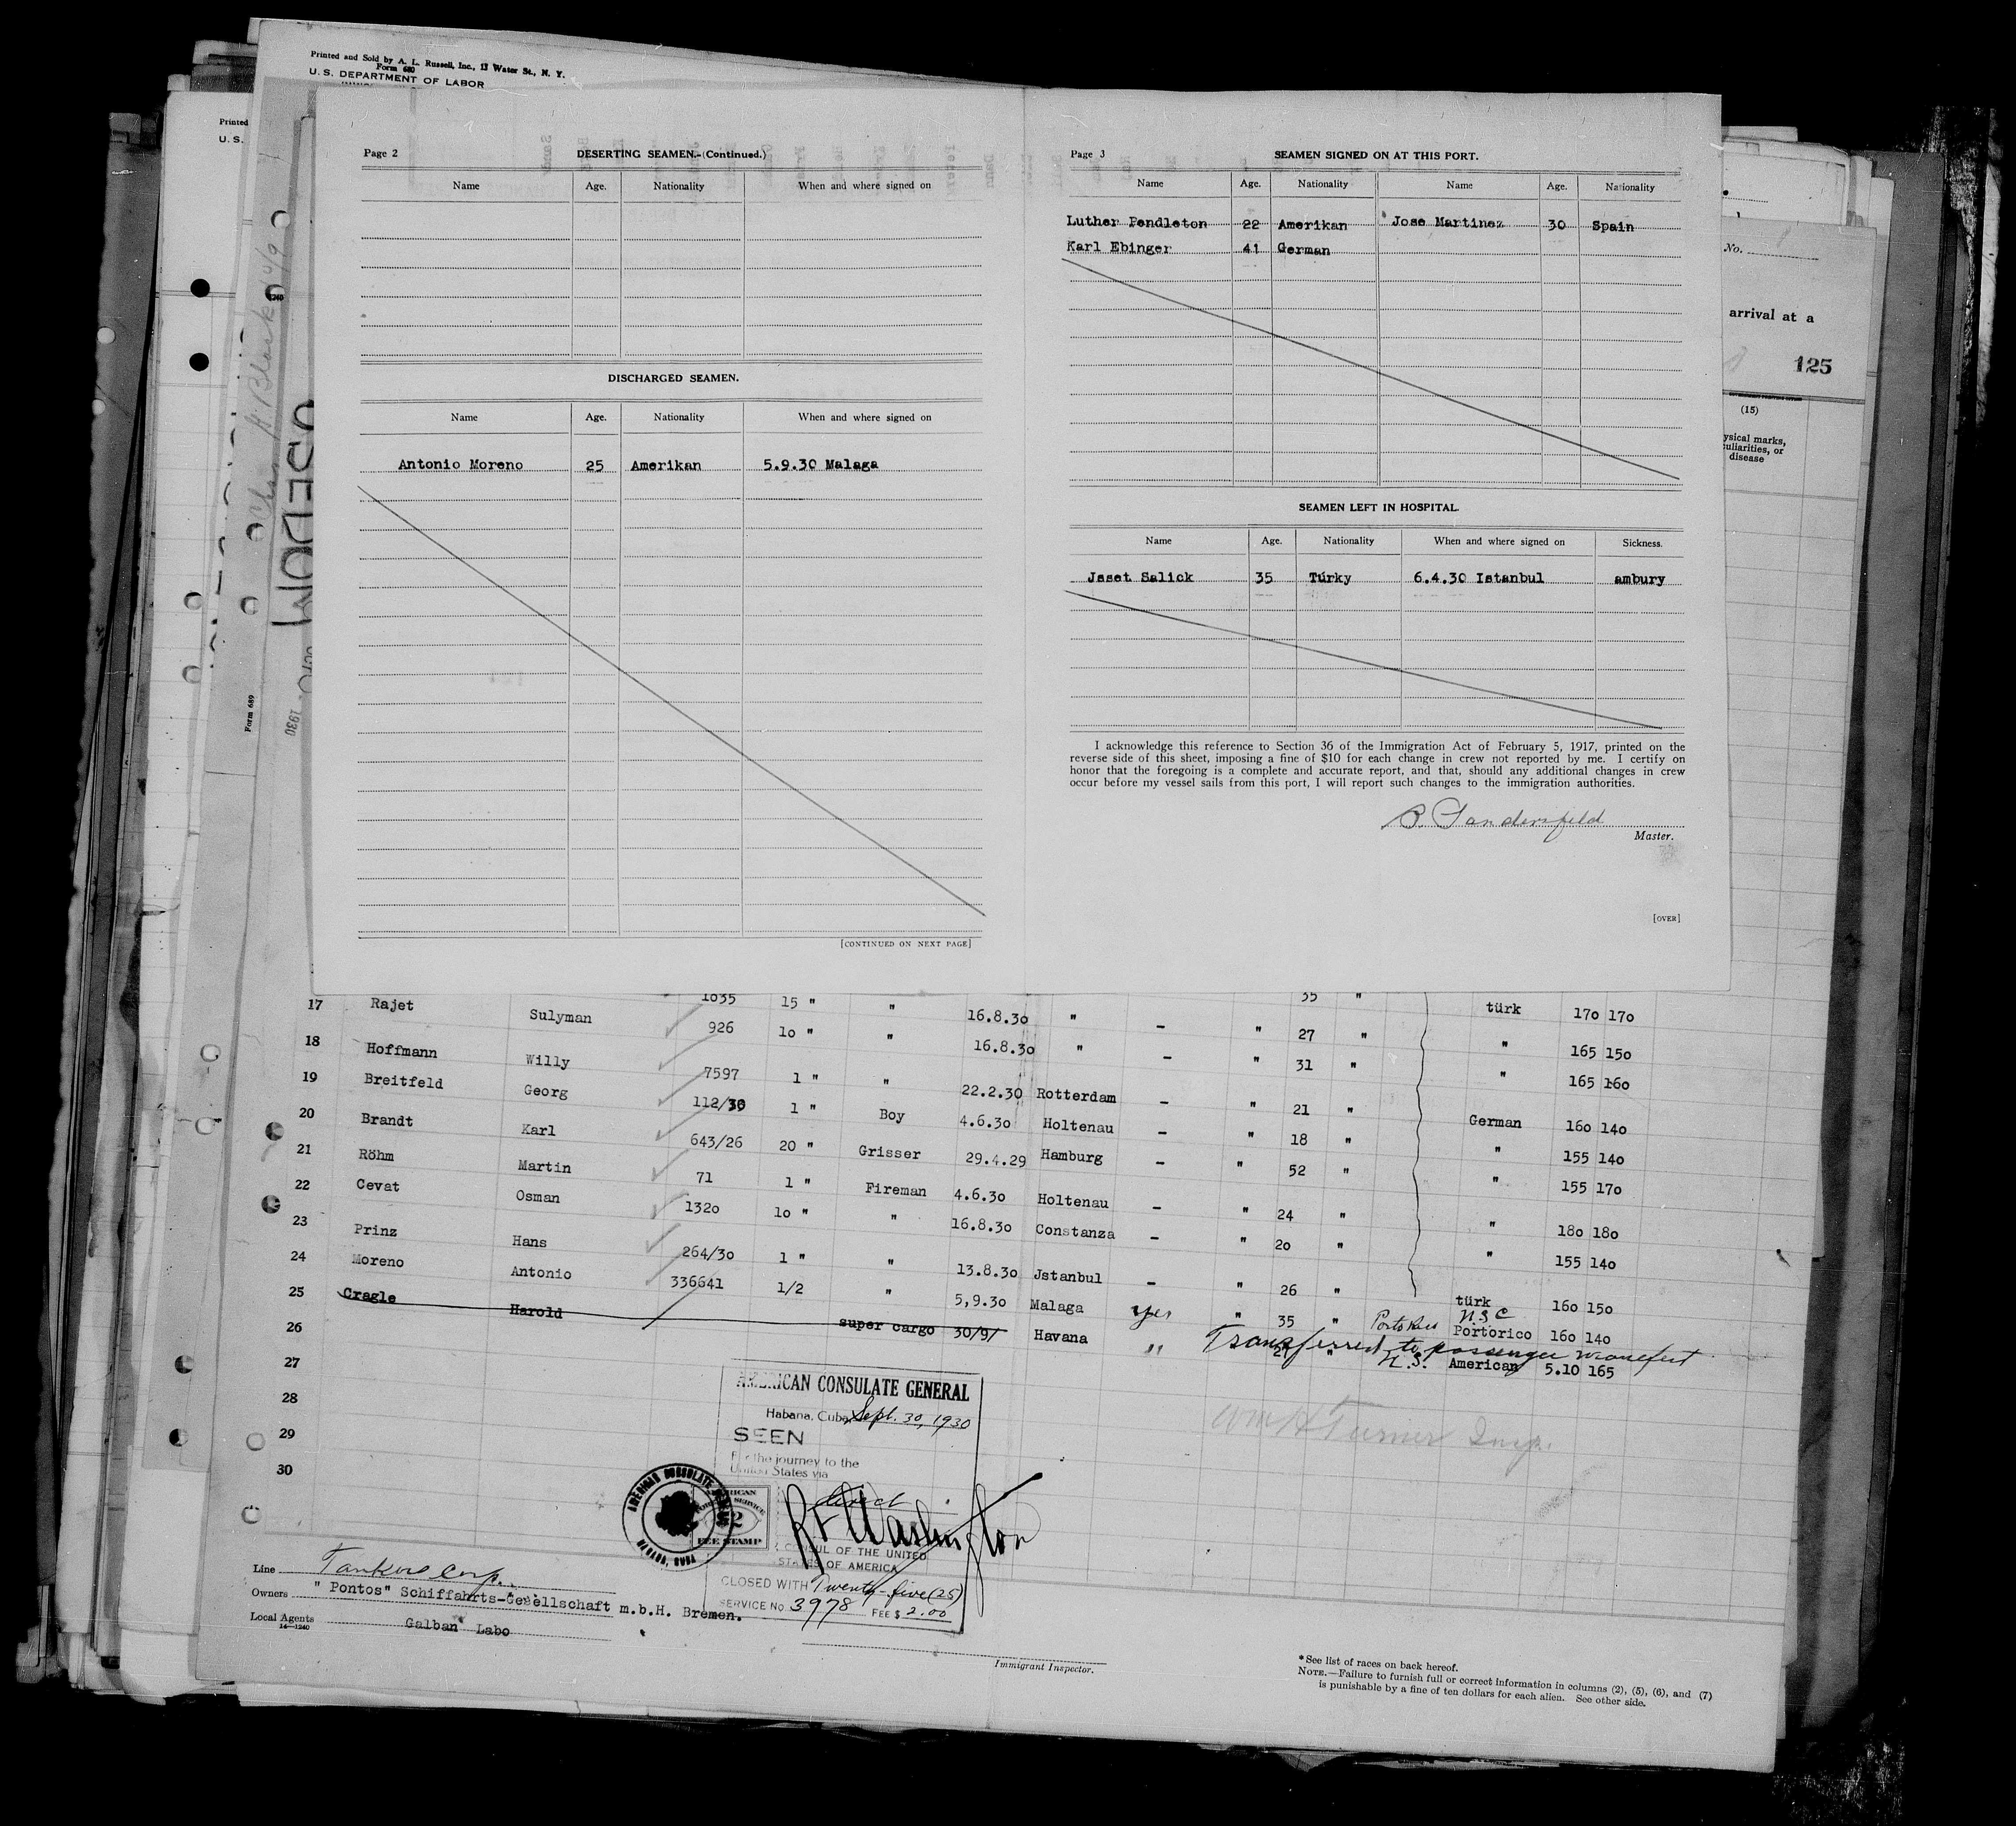 Printed and Sold by A. L. Russell, Inc., 13 Water St., N. Y.
Form 680
U. S. DEPARTMENT OF LABOR
Printed
U. S.
Page 2
DESERTING SEAMEN.-(Continued.)
Name Age. Nationality When and where signed on
DISCHARGED SEAMEN.
Name Age. Nationality When and where signed on
Antonio Moreno 25 Amerikan 5.9.30 Malaga
[CONTINUED ON NEXT PAGE]
Page 3
SEAMEN SIGNED ON AT THIS PORT.
Name Age. Nationality Name Age. Nationality
Luther Pendleton 22 Amerikan Jose Martinez 30 Spain
Karl Ebinger 41 German
SEAMEN LEFT IN HOSPITAL.
Name Age. Nationality When and where signed on Sickness.
Jsset Salick 35 Türky 6.4.30 Istanbul ambury
I acknowledge this reference to Section 36 of the Immigration Act of February 5, 1917, printed on the
reverse side of this sheet, imposing a fine of $10 for each change in crew not reported by me. I certify on
honor that the foregoing is a complete and accurate report, and that, should any additional changes in crew
occur before my vessel sails from this port, I will report such changes to the immigration authorities.
B. Sandersfeld
Master.
[OVER]
No.
arrival at a
125
(15)
ysical marks,
uliarities, or
disease
Form 689
1930
17 Rajet Sulyman 1035 15 " " 16.8.30 " 35 " türk 170 170
18 Hoffmann Willy 926 10 " " 16.8.30 " — " 27 " " 165 150
19 Breitfeld Georg 7597 1 " " 22.2.30 Rotterdam — " 31 " " 165 160
20 Brandt Karl 112/30 1 " Boy 4.6.30 Holtenau — " 21 " German 160 140
21 Röhm Martin 643/26 20 " Grisser 29.4.29 Hamburg — " 18 " " 155 140
22 Cevat Osman 71 1 " Fireman 4.6.30 Holtenau — " 52 " " 155 170
23 Prinz Hans 1320 10 " " 16.8.30 Constanza — " 24 " " 180 180
24 Moreno Antonio 264/30 1 " " 13.8.30 Jstanbul — " 20 " " 155 140
25 Cragle Harold 336641 1/2 " 5,9.30 Malaga yes " 26 " türk 160 150
26 super cargo 30/9/ Havana " 35 " Porto Rico U.S.C Portorico 160 140
Transferred to passenger manifest
27 U.S. American 5.10 165
28
29
30
AMERICAN CONSULATE GENERAL
Habana, Cuba, Sept. 30, 1930
SEEN
For the journey to the
United States via
direct
R F Washington
CONSUL OF THE UNITED
STATES OF AMERICA
CLOSED WITH Twenty-five (25)
SERVICE No 3978 FEE $ 2.00
AMERICAN CONSULATE GENERAL
HABANA, CUBA
AMERICAN
SERVICE
2
FEE STAMP
Wm H Turner Insp.
Line Tankers Corp.
Owners "Pontos" Schiffahrts-Gesellschaft m.b.H. Bremen.
Local Agents Galban Labo
14—1240
Immigrant Inspector.
* See list of races on back hereof.
NOTE.—Failure to furnish full or correct information in columns (2), (5), (6), and (7)
is punishable by a fine of ten dollars for each alien. See other side.